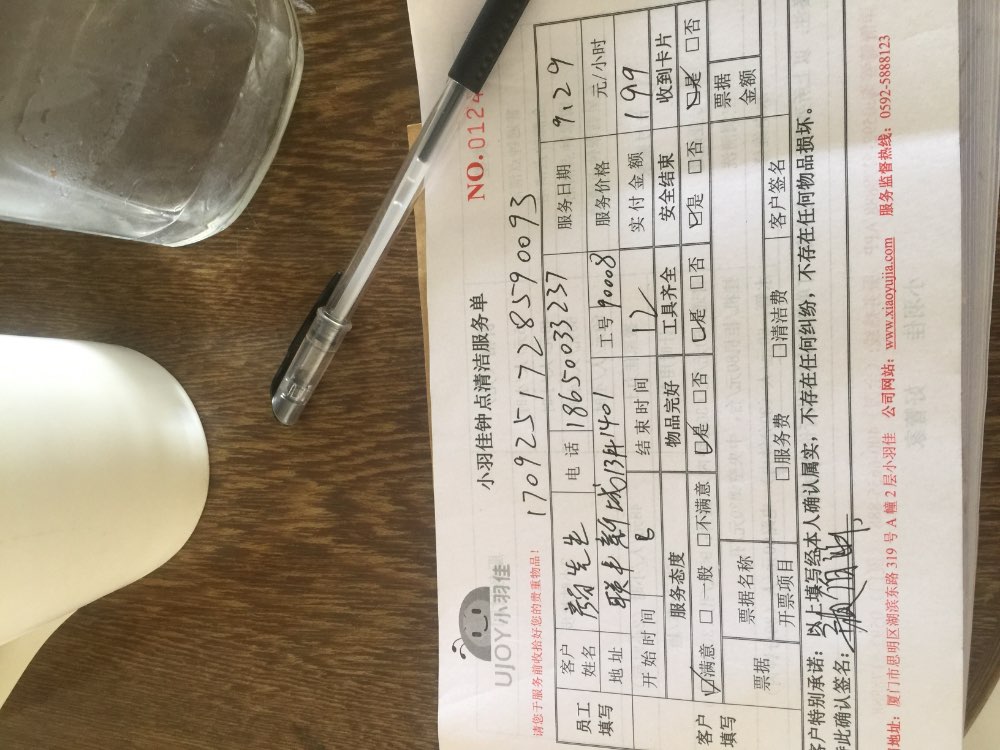 UJOY小羽佳
小羽佳钟点清洁服务单
NO.0124
请您于服务前收拾好您的贵重物品!
1709251728590093
员工填写 客户姓名 颜先生 电话 18650033237 服务日期 9.29
地址 联丰新城 1401 工号 90008 服务价格 元/小时
开始时间 结束时间 12 实付金额 199
客户填写 服务态度 物品完好 工具齐全 安全结束 收到卡片
☑满意 □一般 □不满意 ☑是 □否 ☑是 □否 ☑是 □否 ☑是 □否
票据 票据名称 票据金额
开票项目 □服务费 □清洁费 客户签名
客户特别承诺:以上填写经本人确认属实,不存在任何纠纷,不存在任何物品损坏。
特此确认签名:
地址:厦门市思明区湖滨东路319号A幢2层小羽佳 公司网站:www.xiaoyujia.com 服务监督热线:0592-5888123